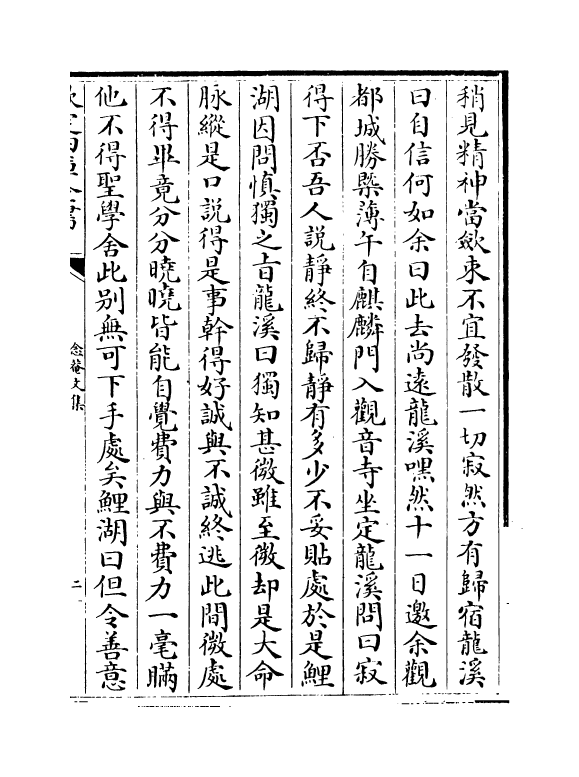 稍見精神當斂束不宜發散一切寂然方有歸宿龍溪
曰自信何如余曰此去尚遠龍溪嘿然十一日邀余觀
都城勝槩薄午自麒麟門入觀音寺坐定龍溪問曰寂
得下否吾人說靜終不歸靜有多少不妥貼處於是鯉
湖因問慎獨之旨龍溪曰獨知甚微雖至微却是大命
脉縱是口說得是事幹得好誠與不誠終逃此間微處
不得畢竟分分曉曉皆能自覺費力與不費力一毫瞞
他不得聖學舍此别無可下手處矣鯉湖曰但令善意
欽定四庫全書
念菴文集
二